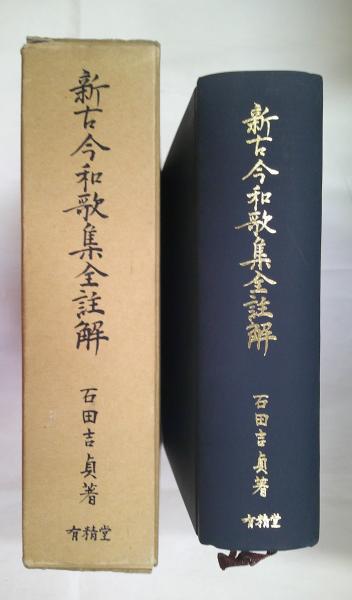 新古今和歌集全註解
石田吉貞著
有精堂
新古今和歌集全註解
石田吉貞著
有精堂